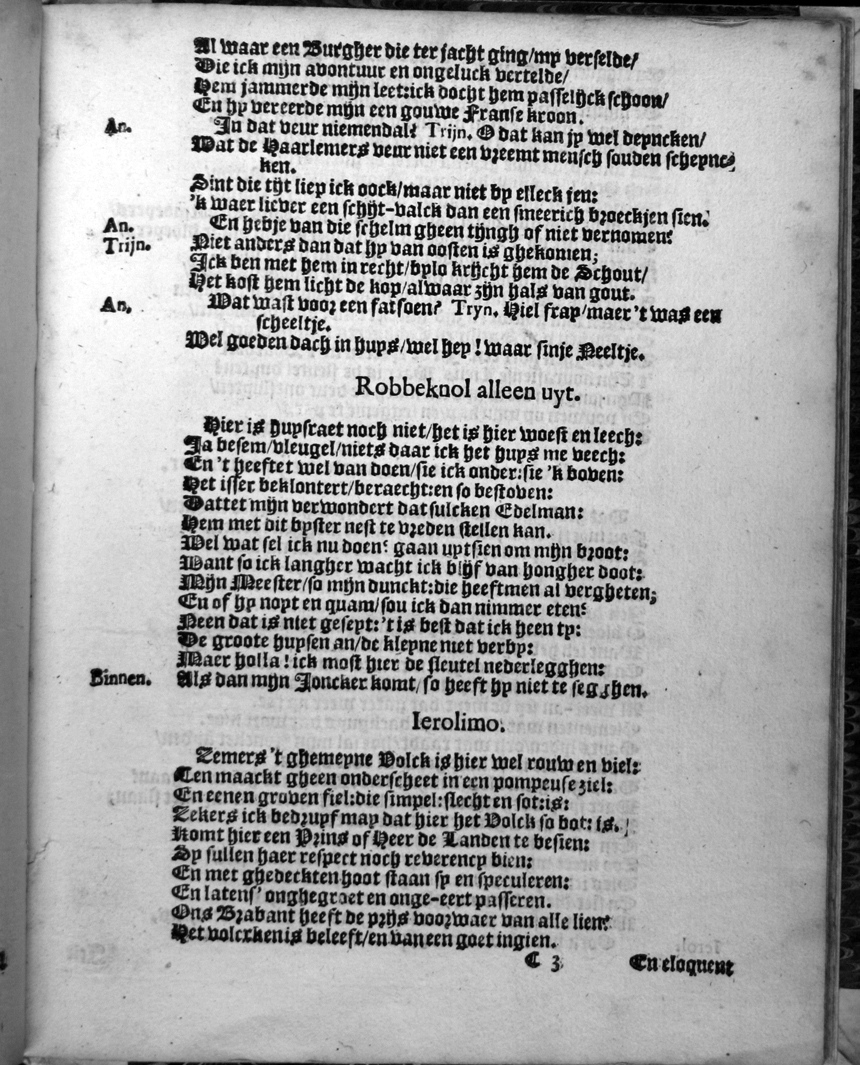 Al waar een Burgher die ter jacht ging/my verselde/
Die ick mijn avontuur en ongeluck vertelde/
Hem jammerde mijn leet:ick docht hem passelijck schoon/
En hy vereerde mijn een gouwe Franse kroon.
An. In dat veur niemendal? Trijn. O dat kan jy wel depncken/
Wat de Haarlemers veur niet een vreemt mensch souden scheyne
ken.
Sint die tijt liep ick oock/maar niet by elleck jen:
'k waer liever een schijt-valck dan een smeerich broeckjen sien.
An. En hebje van die schelm gheen tijngh of niet vernomen?
Trijn. Niet anders dan dat hy van oosten is ghekomen;
Ick ben met hem in recht/bylo krijcht hem de Schout/
Het kost hem licht de kop/alwaar zijn hals van gout.
An. Wat wast voor een fatsoen? Tryn. Hiel frap/maer 't was een
scheeltje.
Wel goeden dach in huys/wel hey! waar sinje Neeltje.
Robbeknol alleen uyt.
Hier is huysraet noch niet/het is hier woest en leech:
Ja besem/vleugel/niets daar ick het huys me veech:
En 't heeftet wel van doen/sie ick onder:sie 'k boven:
Het isser beklontert/beraecht:en so bestoven:
Dattet mijn verwondert dat sulcken Edelman:
Hem met dit byster nest te vreden stellen kan.
Wel wat sel ick nu doen? gaan uytsien om mijn broot:
Want so ick langher wacht ick blijf van hongher doot:
Mijn Meester/so mijn dunckt:die heeftmen al vergheten;
En of hy noyt en quam/sou ick dan nimmer eten?
Neen dat is niet geseyt:'t is best dat ick heen ty:
De groote huysen an/de kleyne niet verby:
Maer holla! ick most hier de sleutel nederlegghen:
Binnen. Als dan mijn Joncker komt/so heeft hy niet te segghen.
Ierolimo.
Zemers 't ghemeyne Volck is hier wel rouw en viel:
Ten maackt gheen onderscheet in een pompeuse ziel:
En eenen groven fiel:die simpel:slecht en sot:is:
Zekers ick bedrupf may dat hier het Volck so bot: is.
Komt hier een Prins of Heer de Landen te besien:
Sy sullen haer respect noch reverency bien:
En met ghedeckten hoot staan sy en speculeren:
En latens' onghegroet en onge-eert passeren.
Ons Brabant heeft de prijs voorwaer van alle lien?
Het volcxken is beleeft/en van een goet ingien.
C 3 En eloquent